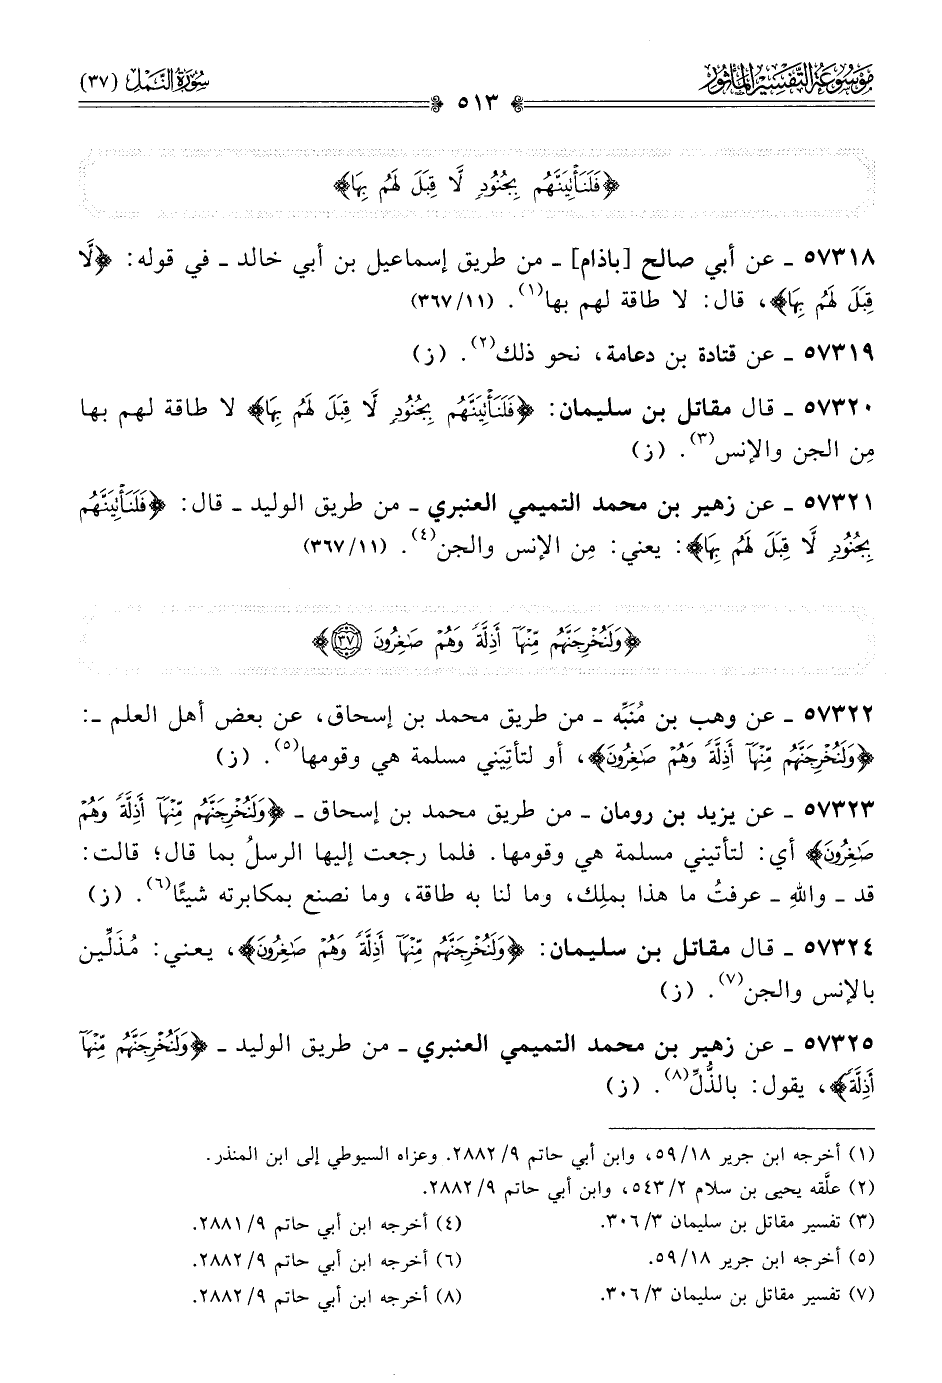 مَوْسُوعَةُ التَّفْسِيرِ المَأْثُورِ
٥١٣
سُورَةُ النَّمْلِ (٣٧)
﴿فَلَنَأْتِيَنَّهُم بِجُنُودٍ لَّا قِبَلَ لَهُم بِهَا﴾
٥٧٣١٨ ـ عن أبي صالح [باذام] ـ من طريق إسماعيل بن أبي خالد ـ في قوله: ﴿لَّا
قِبَلَ لَهُم بِهَا﴾، قال: لا طاقة لهم بها(١). (٣٦٧/١١)
٥٧٣١٩ ـ عن قتادة بن دعامة، نحو ذلك(٢). (ز)
٥٧٣٢٠ ـ قال مقاتل بن سليمان: ﴿فَلَنَأْتِيَنَّهُم بِجُنُودٍ لَّا قِبَلَ لَهُم بِهَا﴾ لا طاقة لهم بها
مِن الجن والإنس(٣). (ز)
٥٧٣٢١ ـ عن زهير بن محمد التميمي العنبري ـ من طريق الوليد ـ قال: ﴿فَلَنَأْتِيَنَّهُم
بِجُنُودٍ لَّا قِبَلَ لَهُم بِهَا﴾: يعني: مِن الإنس والجن(٤). (٣٦٧/١١)
﴿وَلَنُخْرِجَنَّهُم مِّنْهَآ أَذِلَّةً وَهُمْ صَٰغِرُونَ ٣٧﴾
٥٧٣٢٢ ـ عن وهب بن مُنَبِّه ـ من طريق محمد بن إسحاق، عن بعض أهل العلم ـ:
﴿وَلَنُخْرِجَنَّهُم مِّنْهَآ أَذِلَّةً وَهُمْ صَٰغِرُونَ﴾، أو لتأتِيَني مسلمة هي وقومها(٥). (ز)
٥٧٣٢٣ ـ عن يزيد بن رومان ـ من طريق محمد بن إسحاق ـ ﴿وَلَنُخْرِجَنَّهُم مِّنْهَآ أَذِلَّةً وَهُمْ
صَٰغِرُونَ﴾ أي: لتأتيني مسلمة هي وقومها. فلما رجعت إليها الرسلُ بما قال؛ قالت:
قد ـ واللهِ ـ عرفتُ ما هذا بملِك، وما لنا به طاقة، وما نصنع بمكابرته شيئًا(٦). (ز)
٥٧٣٢٤ ـ قال مقاتل بن سليمان: ﴿وَلَنُخْرِجَنَّهُم مِّنْهَآ أَذِلَّةً وَهُمْ صَٰغِرُونَ﴾، يعني: مُذَلِّين
بالإنس والجن(٧). (ز)
٥٧٣٢٥ ـ عن زهير بن محمد التميمي العنبري ـ من طريق الوليد ـ ﴿وَلَنُخْرِجَنَّهُم مِّنْهَآ
أَذِلَّةً﴾، يقول: بالذُّلِّ(٨). (ز)
(١) أخرجه ابن جرير ٥٩/١٨، وابن أبي حاتم ٢٨٨٢/٩. وعزاه السيوطي إلى ابن المنذر.
(٢) علَّقه يحيى بن سلام ٥٤٣/٢، وابن أبي حاتم ٢٨٨٢/٩.
(٣) تفسير مقاتل بن سليمان ٣٠٦/٣. (٤) أخرجه ابن أبي حاتم ٢٨٨١/٩.
(٥) أخرجه ابن جرير ٥٩/١٨. (٦) أخرجه ابن أبي حاتم ٢٨٨٢/٩.
(٧) تفسير مقاتل بن سليمان ٣٠٦/٣. (٨) أخرجه ابن أبي حاتم ٢٨٨٢/٩.